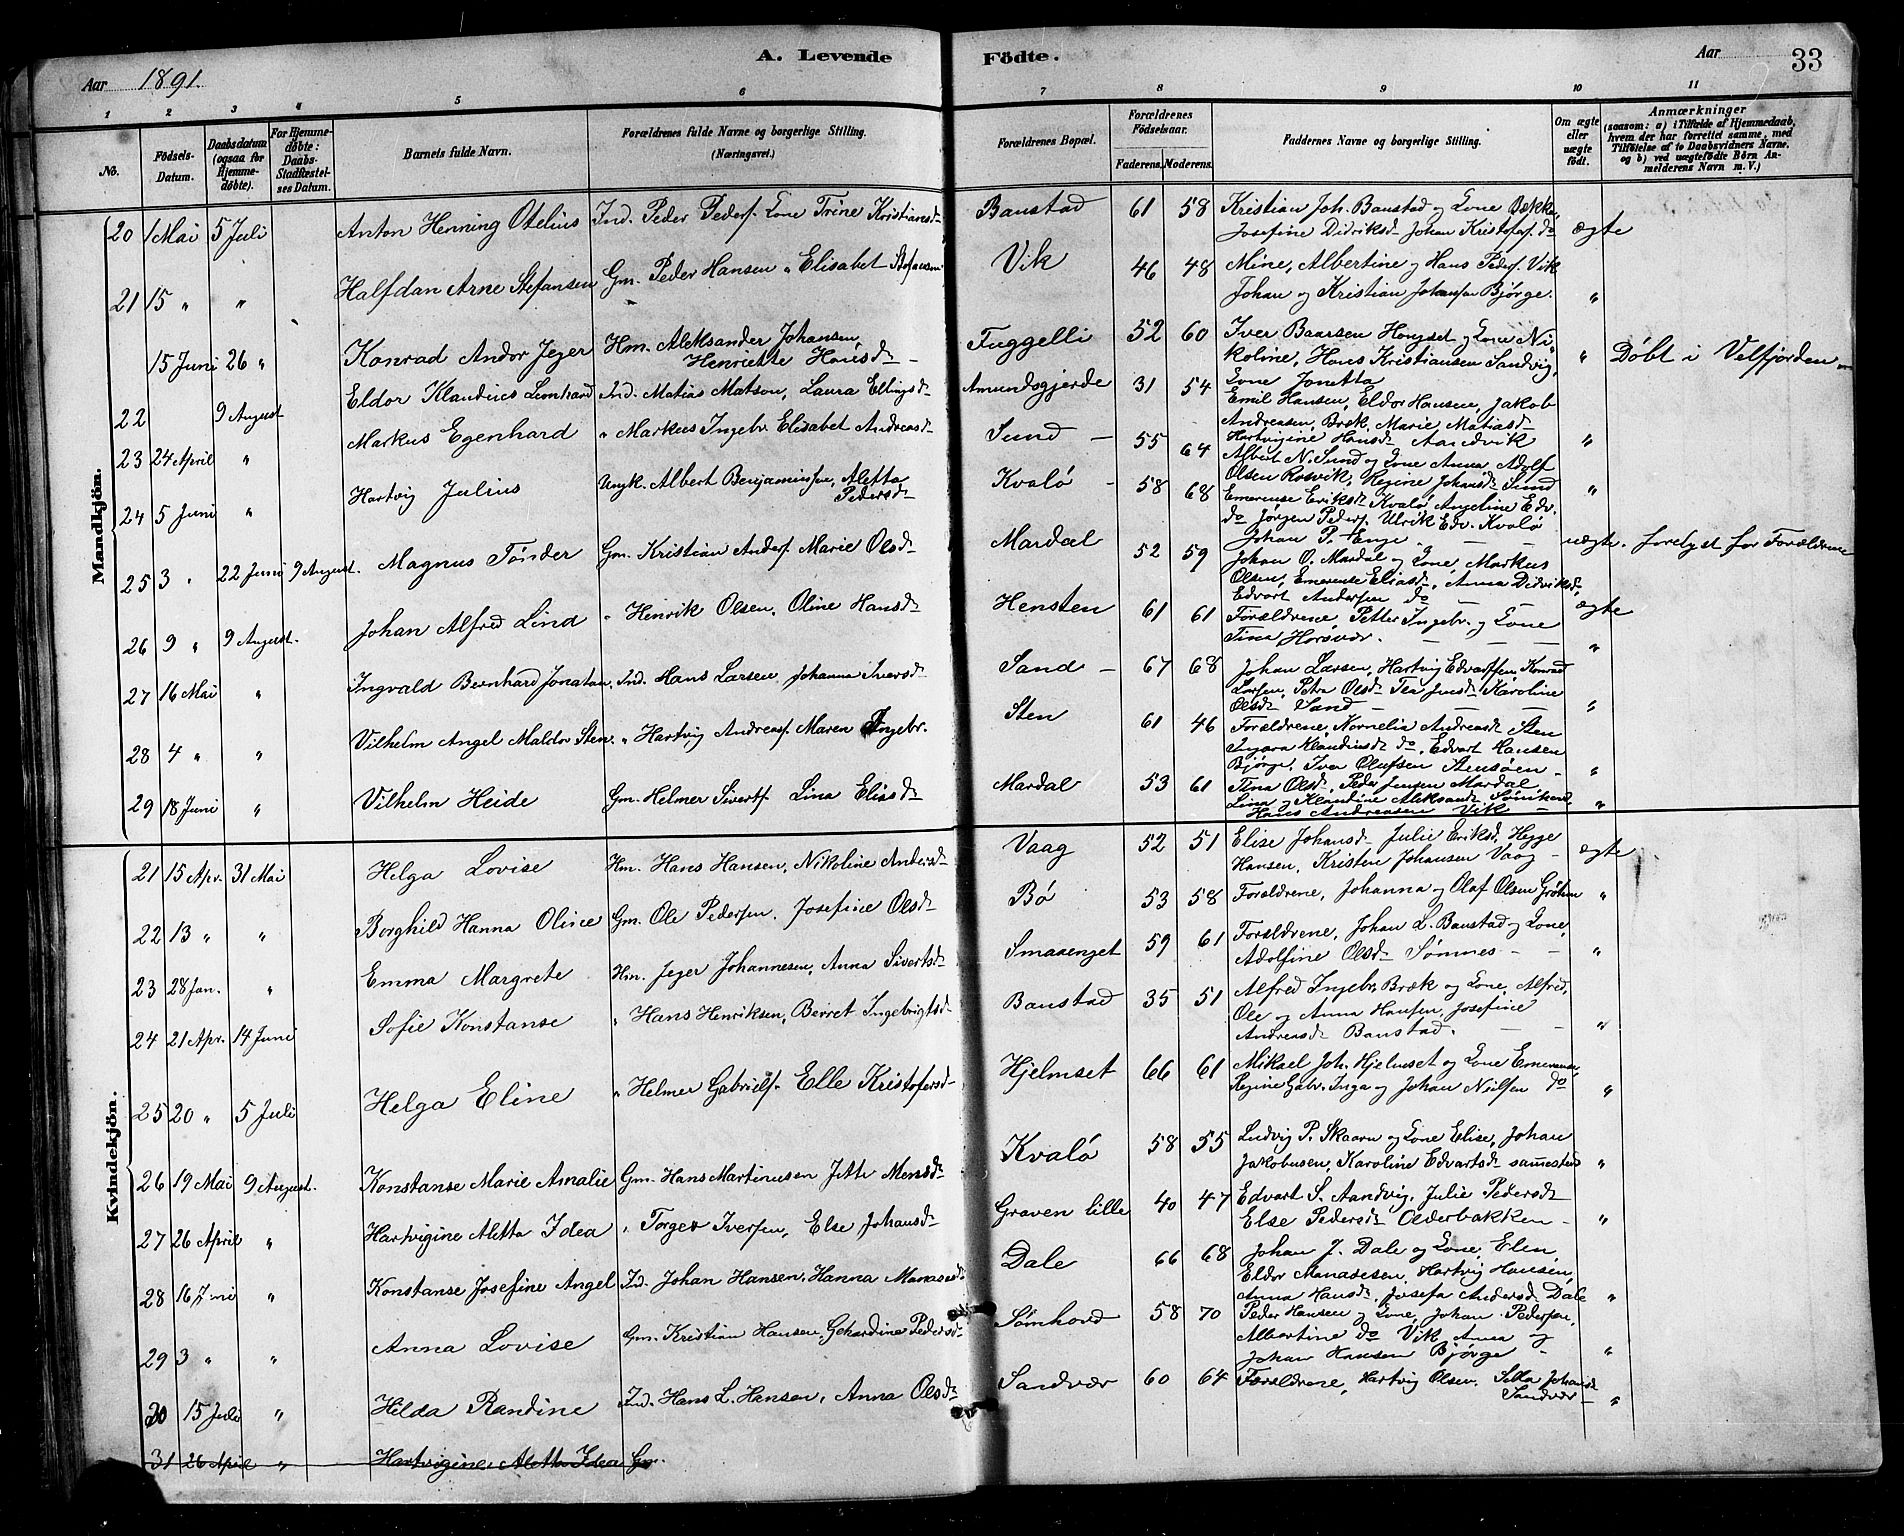 Aar 1891. A. Levende Födte. Aar 33
1 2 3 4 5 6 7 8 9 10 11
No. Födsels-Datum. Daabsdatum (ogsaa for Hjemmedøbte). For Hjemmedøbte: Daabs-Stadfæstelses Datum. Barnets fulde Navn. Forældrenes fulde Navne og borgerlige Stilling. (Næringsvei.) Forældrenes Bopæl. Forældrenes Fødselsaar. Faderens. Moderens. Faddernes Navne og borgerlige Stilling. Om ægte eller uægte födt. Anmærkninger (saasom: a) i Tilfælde af Hjemmedaab, hvem der har forrettet samme, med Tilföielse af to Daabsvidners Navne, og b) ved uægtefödte Börn Anmelderens Navn m. V.)
Mandkjön.
20 1 Mai 5 Juli Anton Henning Otelius Ind. Peder Peders. Kone Trine Kristiansd. Baustad 61 58 Kristian Joh. Baustad og Kone Bække,
Josefine Didriksd. Johan Kristofers. do ægte
21 15 " " Halfdan Arne Stefansen Gm. Peder Hansen " Elisabet Stefansen Vik 46 48 Mine, Albertine og Hans Peders. Vik
Johan og Kristian Johansen Bjørge. "
15 Juni 26 " Konrad Andor Jeger Hm. Aleksander Johansen, Henriette Hansd. Fuggelli 52 60 Iver Baarsen Hongset og Kone Ni-
koline, Hans Kristiansen Sandvig, " Døbt i Velfjorden
Kone Jonetta
22 9 August Eldor Klaudius Lemhard Ind. Matias Matson, Laura Ellingsd. Amundsgjerde 31 54 Emil Hansen, Eldor Hansen, Jakob
Andreasen, Bræk, Marie Matiasd.
23 24 April " Markus Egenhard " Markus Ingebr. Elisabet Andreasd. Sund 55 64 Hartvigine Hansd. Aandvik "
Albert N. Sund og Kone Anna, Adolf
Olsen Rosvik, Regine Johansd. Sund
24 5 Juni " Hartvig Julius Ungk. Albert Benjaminsen, Aletta Pedersd. Kvalø 58 68 Emerense Eriksd. Kvalø Angeline Edv. "
do Jørgen Peders. Ulrik Edv. Kvalø
Johan P. Enge uægte. forelyst for Forældrene
25 3 " 22 Juni 9 August. Magnus Tønder Gm. Kristian Anders. Marie Olsd. Mardal 52 59 Johan O. Mardal og Kone, Markus
Olsen, Emerense Eliasd., Anna Didriksd.,
Edvart Andersen do ægte
26 9 " 9 August. Johan Alfred Lind " Henrik Olsen, Oline Hansd. Hensten 61 61 Forældrene, Petter Ingebr. og Kone
Tina Horsvær. "
27 16 Mai " Ingvald Bernhard Jonatan Ind. Hans Larsen, Johanna Iversd. Sand 67 68 Johan Larsen, Hartvig Edvartsen, Konrad
Larsen, Petra Olsd. Tea Jensd. Karoline
Olsd. Sand "
28 4 " " Vilhelm Angel Maldor Sten " Hartvig Andreas. Maren Ingebr. Sten 61 46 Forældrene, Kornelia Andreasd. Sten
Ingara Klaudiusd. do, Edvart Hansen
Bjørge, Iver Olufsen "
29 18 Juni " Vilhelm Heide Gm. Helmer Siverts. Lina Eliasd. Mardal 53 61 Tina Olsd. Peder Jensen Mardal,
Lina og Klaudine Aleksandr.
Hans Andreasen Vik "
Kvindekjön.
21 15 Apr. 31 Mai Helga Lovise Hm. Hans Hansen, Nikoline Andersd. Vaag 52 51 Elise Johansd. Julie Eriksd. Hegge
Hansen, Kristen Johansen Vaag ægte
22 13 " " Borghild Hanna Oline Gm. Ole Pedersen, Josefine Olsd. Bø 53 58 Forældrene, Johanna og Olaf Olsen "
23 28 Jan. " Emma Margrete Hm. Jeger Johannesen, Anna Sivertsd. Smaaenget 59 61 Forældrene, Johan L. Baustad og Kone,
Adolfine Olsd. Sømnes "
24 21 Apr. 14 Juni Sofie Konstanse " Hans Henriksen, Berret Ingebrigtsd. Baustad 35 51 Alfred Ingebr. Bræk og Kone, Alfred,
Ole og Anna Hansen, Josefine
Andreasd. Baustad. "
25 20 " 5 Juli Helga Eline " Helmer Gabriels. Elle Kristofersd. Hjelmset 66 61 Mikael Joh. Hjelmset og Kone Emerense,
Regine Gabr. Inga og Johan Nilsen do "
26 19 Mai 9 August. Konstanse Marie Amalie Gm. Hans Martinusen Jette Mensd. Kvalø 58 55 Ludvig P. Skaarn og Kone Elise, Johan
Jakobusen, Karoline Edvartsd. samesteds "
27 26 April " Hartvigine Aletta Idea " Torger Iversen, Else Johansd. Graven lille 40 47 Edvart S. Aandvig, Julie Pedersd.
Else Pedersd. Olderbakken "
28 16 Juni " Konstanse Josefine Angel Id. Johan Hansen, Hanna Manasesd. Dale 66 68 Johan J. Dale og Kone, Elen,
Eldor Manasesen, Hartvig Hansen,
Anna Hansd. Josefa Andersd. Dale "
29 3 " " Anna Lovise Gm. Kristian Hansen, Gehardine Pedersd. Sømhovd 58 70 Peder Hansen og Kone, Johan Pedersen,
Albertine do Vik Anna og
Johan Hansen Bjørge "
30 15 Juli " Hilda Randine Ind. Hans L. Hansen, Anna Olsd. Sandvær 60 64 Forældrene, Hartvig Olsen, Johansd.
Sandvær "
31 26 April " Hartvigine Aletta Idea Gm.